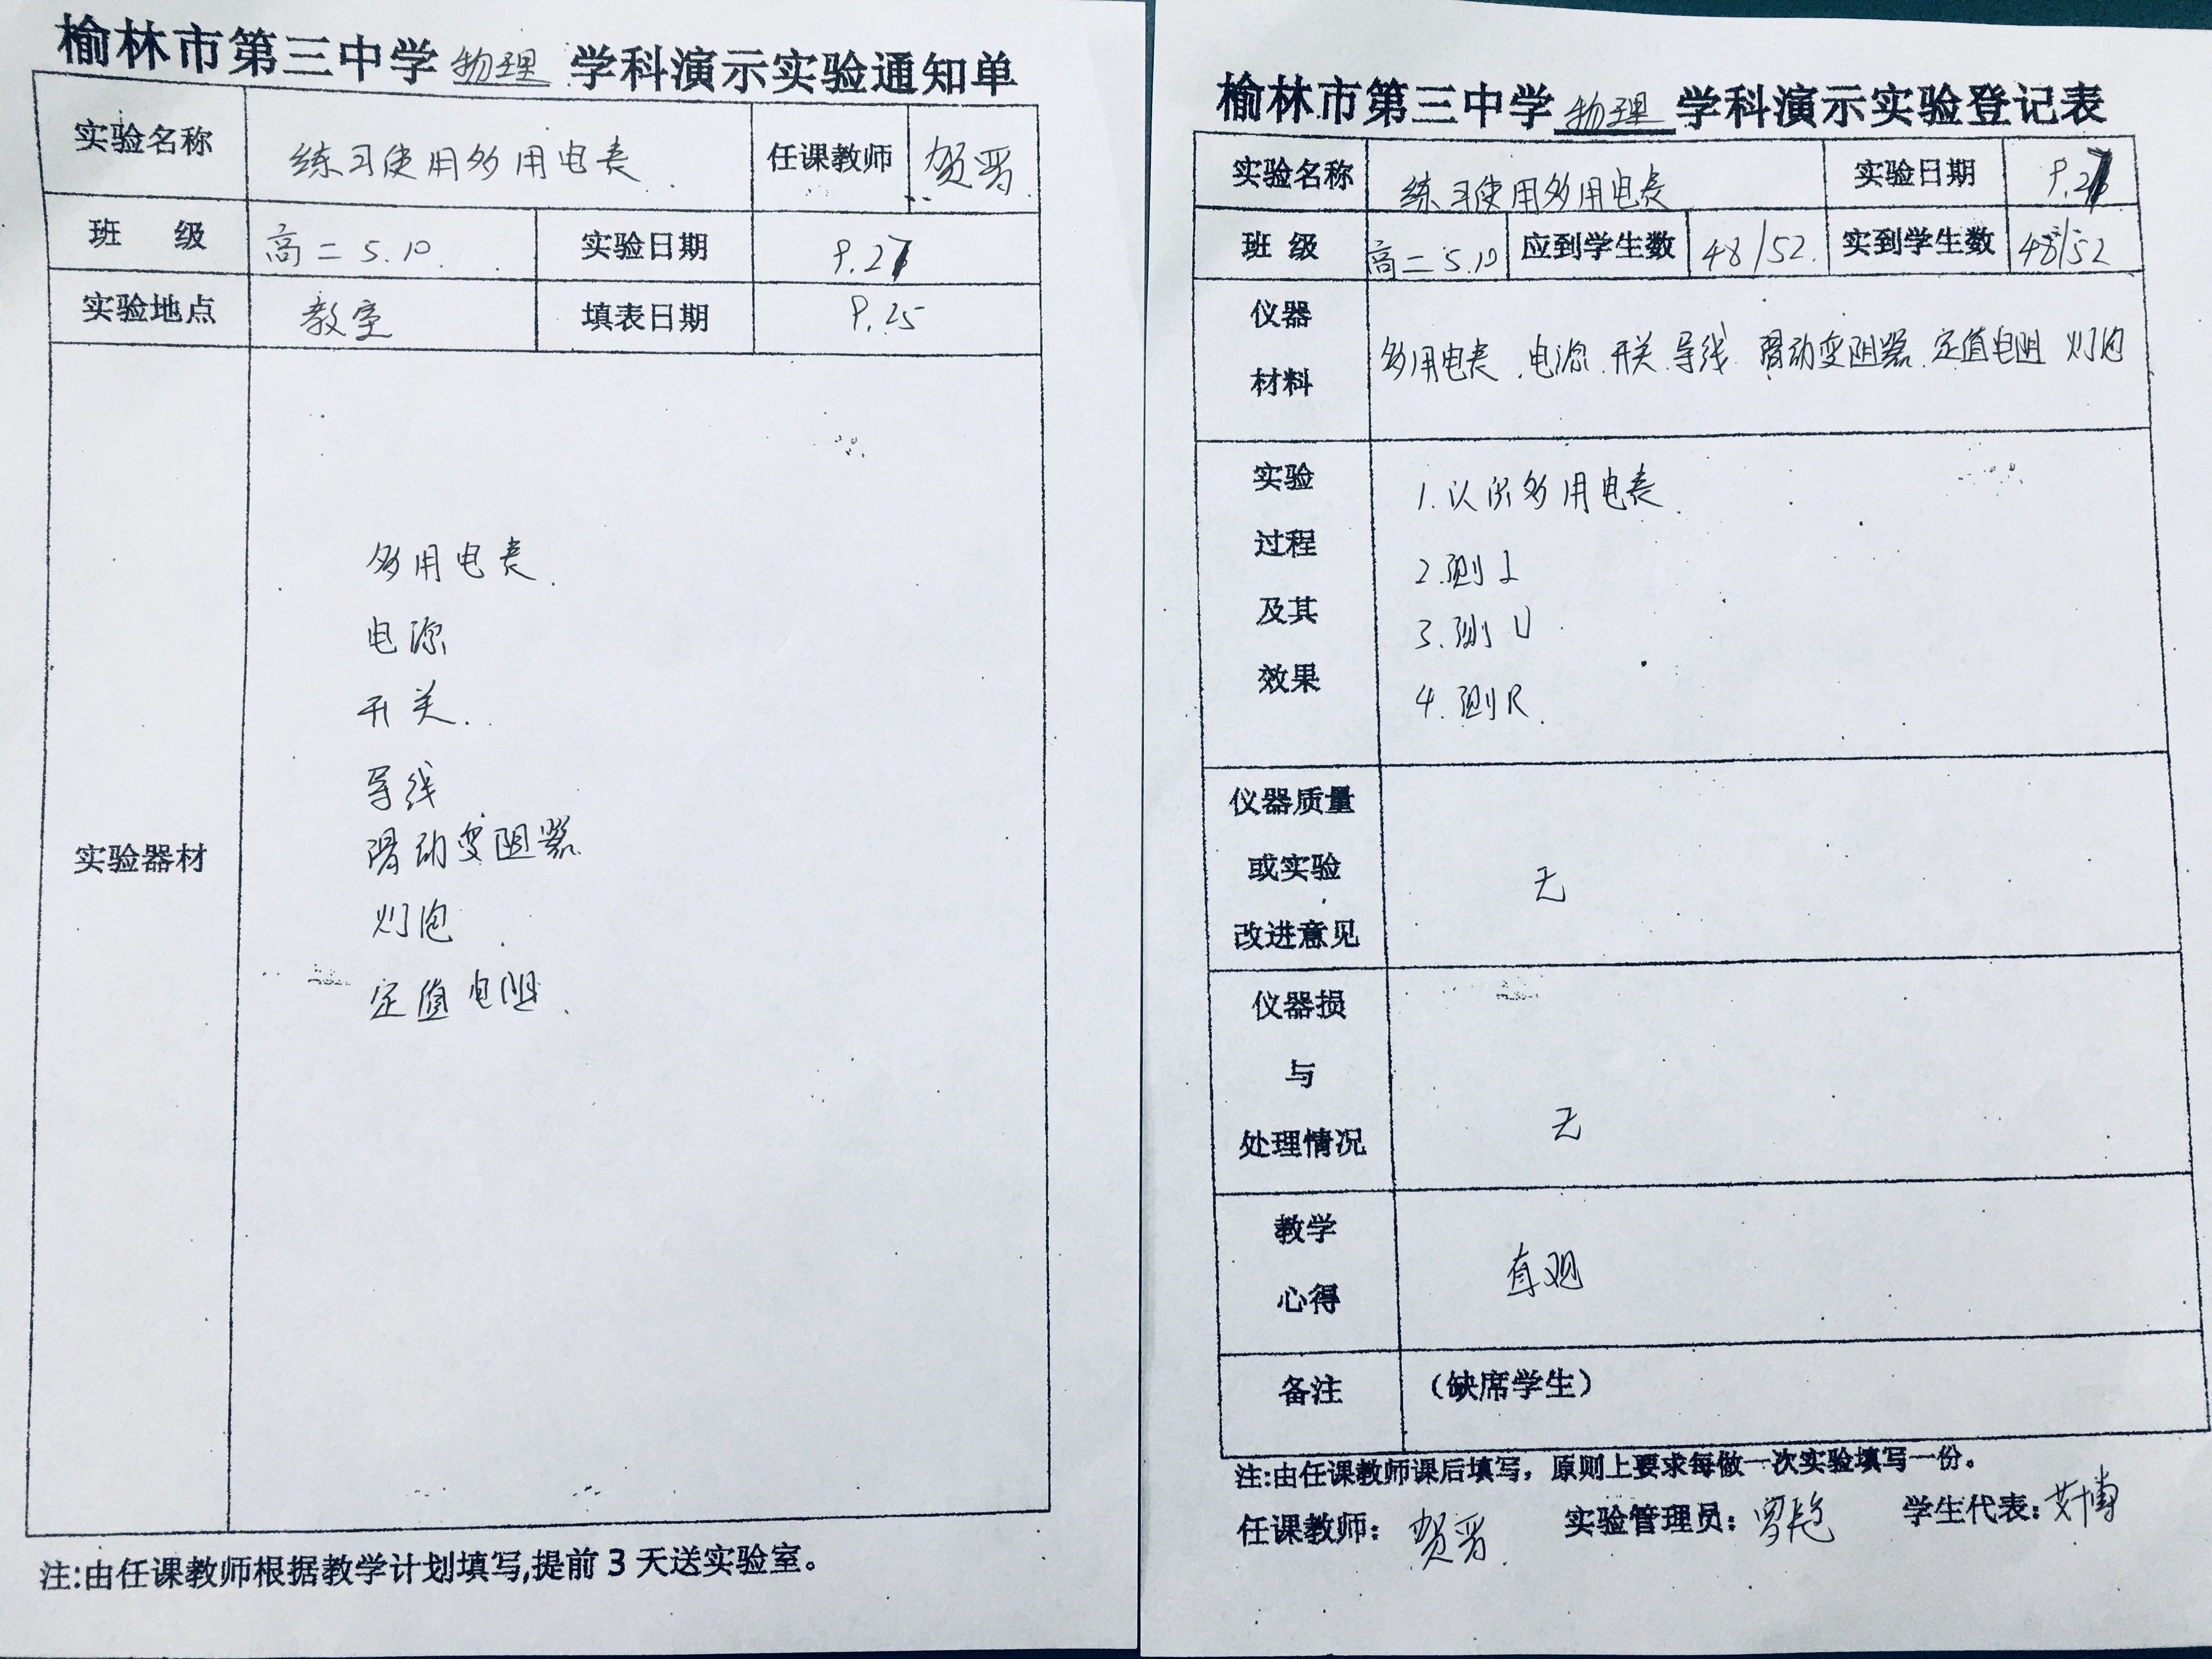 榆林市第三中学 物理 学科演示实验通知单
实验名称 练习使用多用电表. 任课教师 贺晋
班 级 高二 5.10. 实验日期 9.27
实验地点 教室 填表日期 9.25
实验器材
多用电表.
电源
开关.
导线
滑动变阻器
灯泡
定值电阻.
注:由任课教师根据教学计划填写,提前 3 天送实验室。
榆林市第三中学 物理 学科演示实验登记表
实验名称 练习使用多用电表 实验日期 9.27
班 级 高二 5.10 应到学生数 48/52. 实到学生数 48/52
仪器
材料
多用电表.电源.开关.导线 滑动变阻器.定值电阻 灯泡
实验
过程
及其
效果
1.认识多用电表
2.测 I
3.测 U
4.测 R.
仪器质量
或实验
改进意见
无
仪器损
与
处理情况
无
教学
心得
直观
备注 （缺席学生）
注:由任课教师课后填写，原则上要求每做一次实验填写一份。
任课教师: 贺晋. 实验管理员: 学生代表: